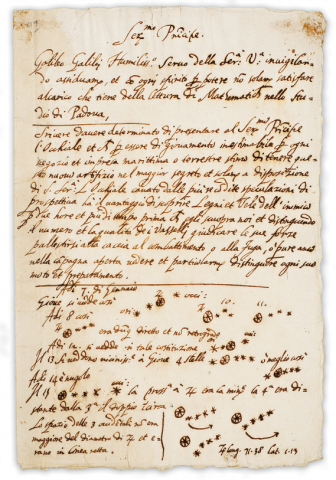 Ser.mo Principe.
Galileo Galilej Humiliss.o Servo della Ser.a V.a invigilan-
do assiduam.te, et cõ ogni spirito p potere nõ solam.te satisfare
al carico che tiene della lettura di Matematich nello Stu-
dio di Padova,
Scrivere davere determinato di presentare al Ser.mo Principe
l'Ochiale et p essere di giovamento inestimabile p ogni
negozio et impresa marittima o terrestre stimo di tenere que-
sto nuovo artifizio nel maggior segreto et solam.te a disposizione
di S. Ser.a L'Ochiale cavato dalle piu recõdite speculazioni di
prospettiva ha il vantaggio di scoprire Legni et Vele dell'inimico
p due hore et piu di tempo prima ch' egli scuopra noi et distinguendo
il numero et la qualita de i Vasselli giudicare le sue forze
pallestirsi alla caccia al combattimento o alla fuga, o pure anco
nella capagna aperta vedere et particolarm.te distinguere ogni suo
moto et preparamento.
Adi 7. di Gennaio
Giove si vedde cosi
Adi 8 cosi
era dūq diretto et nõ retrogrado
Adi 12. si vedde in tale costituzione
Il 13 si veddono vicinis.e a Giove 4 stelle o meglio cosi
Adi 14 è nugolo
Il 15 la pross.a a 4 era la min.e la 4.a era di-
stante dalla 3.a il doppio incirca
Lo spazio delle 3 occidentali nõ era
maggiore del diametro di 4 et e-
rano in linea retta.
4 long. 71.38 lat. 1.13